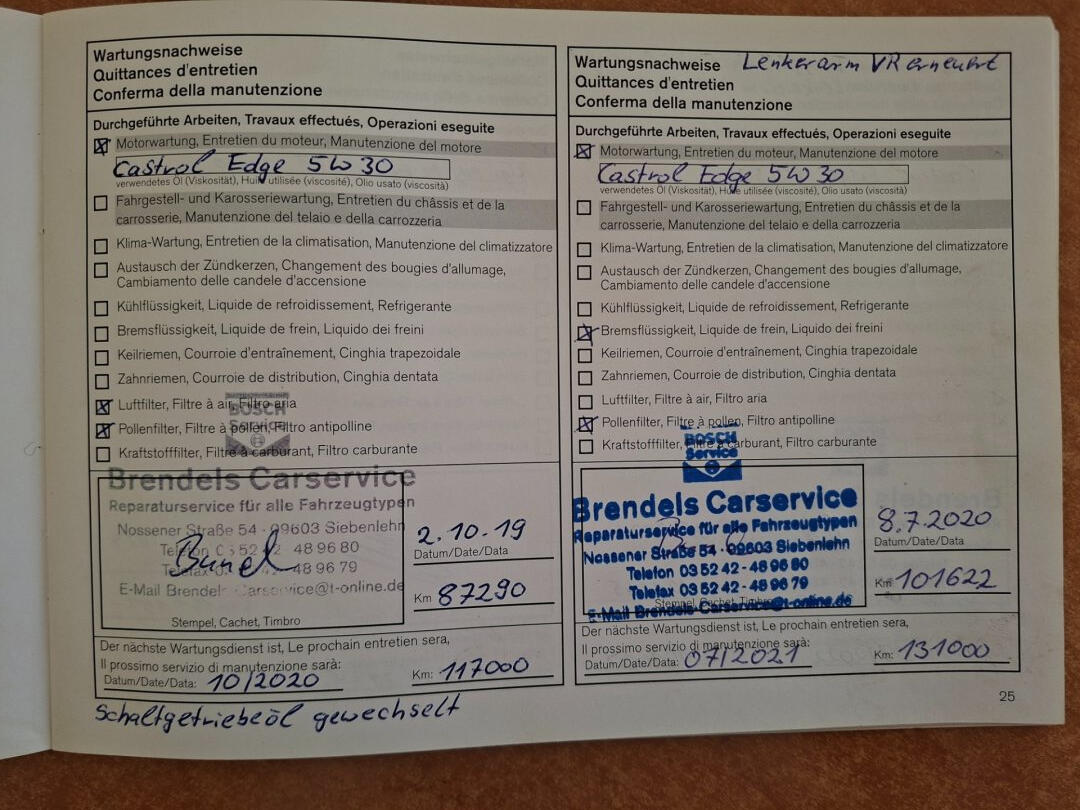 Wartungsnachweise
Quittances d'entretien
Conferma della manutenzione
Durchgeführte Arbeiten, Travaux effectués, Operazioni eseguite
Motorwartung, Entretien du moteur, Manutenzione del motore
Castrol Edge 5W30
verwendetes Öl (Viskosität), Huile utilisée (viscosité), Olio usato (viscosità)
Fahrgestell- und Karosseriewartung, Entretien du châssis et de la
carrosserie, Manutenzione del telaio e della carrozzeria
Klima-Wartung, Entretien de la climatisation, Manutenzione del climatizzatore
Austausch der Zündkerzen, Changement des bougies d'allumage,
Cambiamento delle candele d'accensione
Kühlflüssigkeit, Liquide de refroidissement, Refrigerante
Bremsflüssigkeit, Liquide de frein, Liquido dei freini
Keilriemen, Courroie d'entraînement, Cinghia trapezoidale
Zahnriemen, Courroie de distribution, Cinghia dentata
Luftfilter, Filtre à air, Filtro aria
Pollenfilter, Filtre à pollen, Filtro antipolline
Kraftstofffilter, Filtre à carburant, Filtro carburante
BOSCH
Service
Brendels Carservice
Reparaturservice für alle Fahrzeugtypen
Nossener Straße 54 · 09603 Siebenlehn
Telefon 03 52 42 - 48 96 80
Telefax 03 52 42 - 48 96 79
E-Mail Brendels-Carservice@t-online.de
Stempel, Cachet, Timbro
2.10.19
Datum/Date/Data
Km 87290
Der nächste Wartungsdienst ist, Le prochain entretien sera,
Il prossimo servizio di manutenzione sarà:
Datum/Date/Data: 10/2020
Km: 117000
Schaltgetriebeöl gewechselt
Wartungsnachweise Lenkerarm VR erneuert
Quittances d'entretien
Conferma della manutenzione
Durchgeführte Arbeiten, Travaux effectués, Operazioni eseguite
Motorwartung, Entretien du moteur, Manutenzione del motore
Castrol Edge 5W30
verwendetes Öl (Viskosität), Huile utilisée (viscosité), Olio usato (viscosità)
Fahrgestell- und Karosseriewartung, Entretien du châssis et de la
carrosserie, Manutenzione del telaio e della carrozzeria
Klima-Wartung, Entretien de la climatisation, Manutenzione del climatizzatore
Austausch der Zündkerzen, Changement des bougies d'allumage,
Cambiamento delle candele d'accensione
Kühlflüssigkeit, Liquide de refroidissement, Refrigerante
Bremsflüssigkeit, Liquide de frein, Liquido dei freini
Keilriemen, Courroie d'entraînement, Cinghia trapezoidale
Zahnriemen, Courroie de distribution, Cinghia dentata
Luftfilter, Filtre à air, Filtro aria
Pollenfilter, Filtre à pollen, Filtro antipolline
Kraftstofffilter, Filtre à carburant, Filtro carburante
BOSCH
Service
Brendels Carservice
Reparaturservice für alle Fahrzeugtypen
Nossener Straße 54 · 09603 Siebenlehn
Telefon 03 52 42 - 48 96 80
Telefax 03 52 42 - 48 96 79
Stempel, Cachet, Timbro
E-Mail Brendels-Carservice@t-online.de
8.7.2020
Datum/Date/Data
Km 101622
Der nächste Wartungsdienst ist, Le prochain entretien sera,
Il prossimo servizio di manutenzione sarà:
Datum/Date/Data: 07/2021
Km: 131000
25